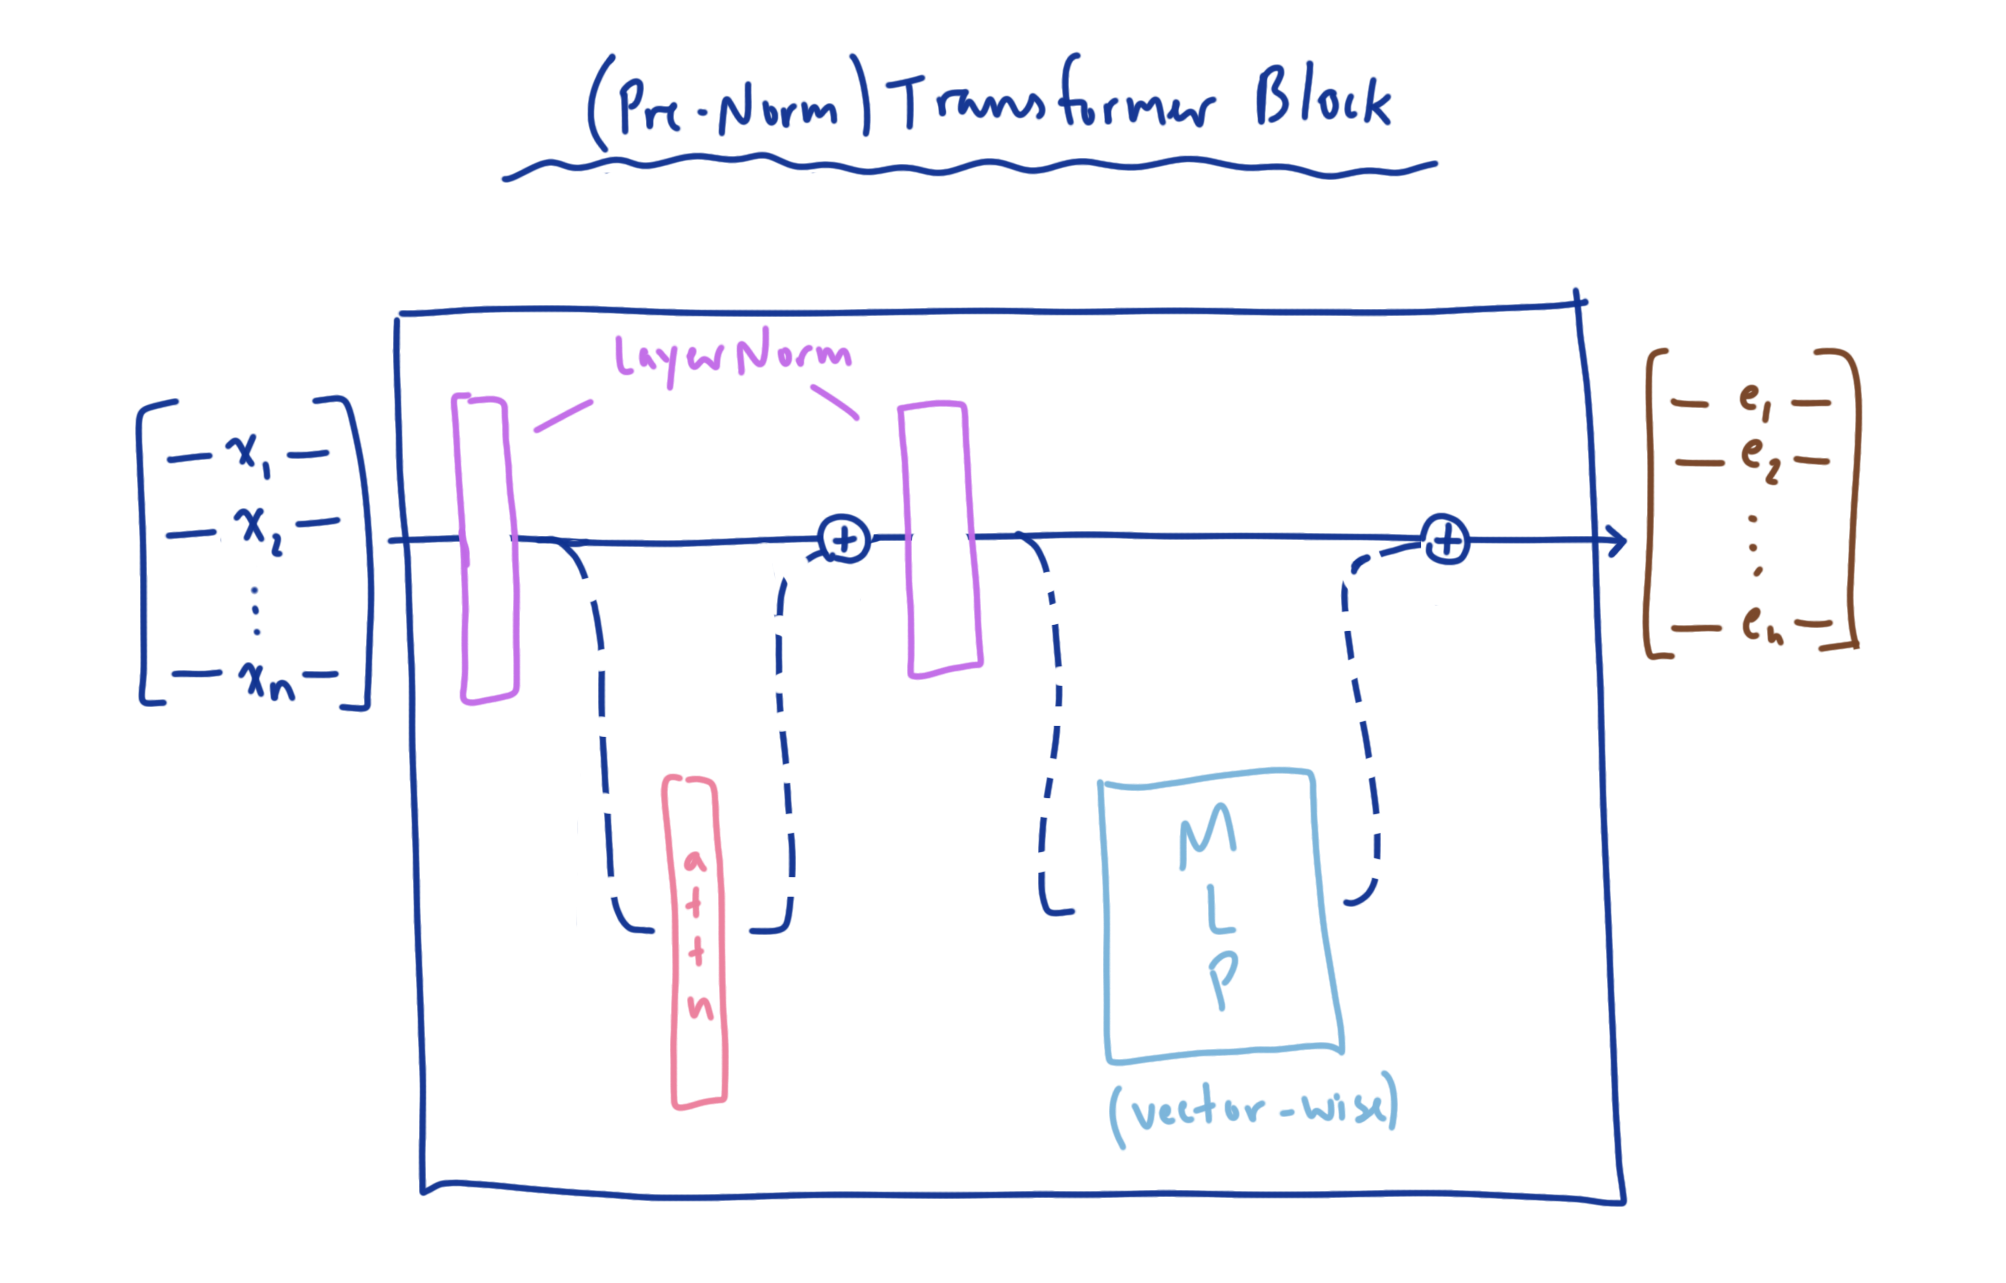 (Pre-Norm) Transformer Block
LayerNorm
— x₁ —
— x₂ —
⋮
— xₙ —
+
+
— e₁ —
— e₂ —
⋮
— eₙ —
attn
MLP
(vector-wise)